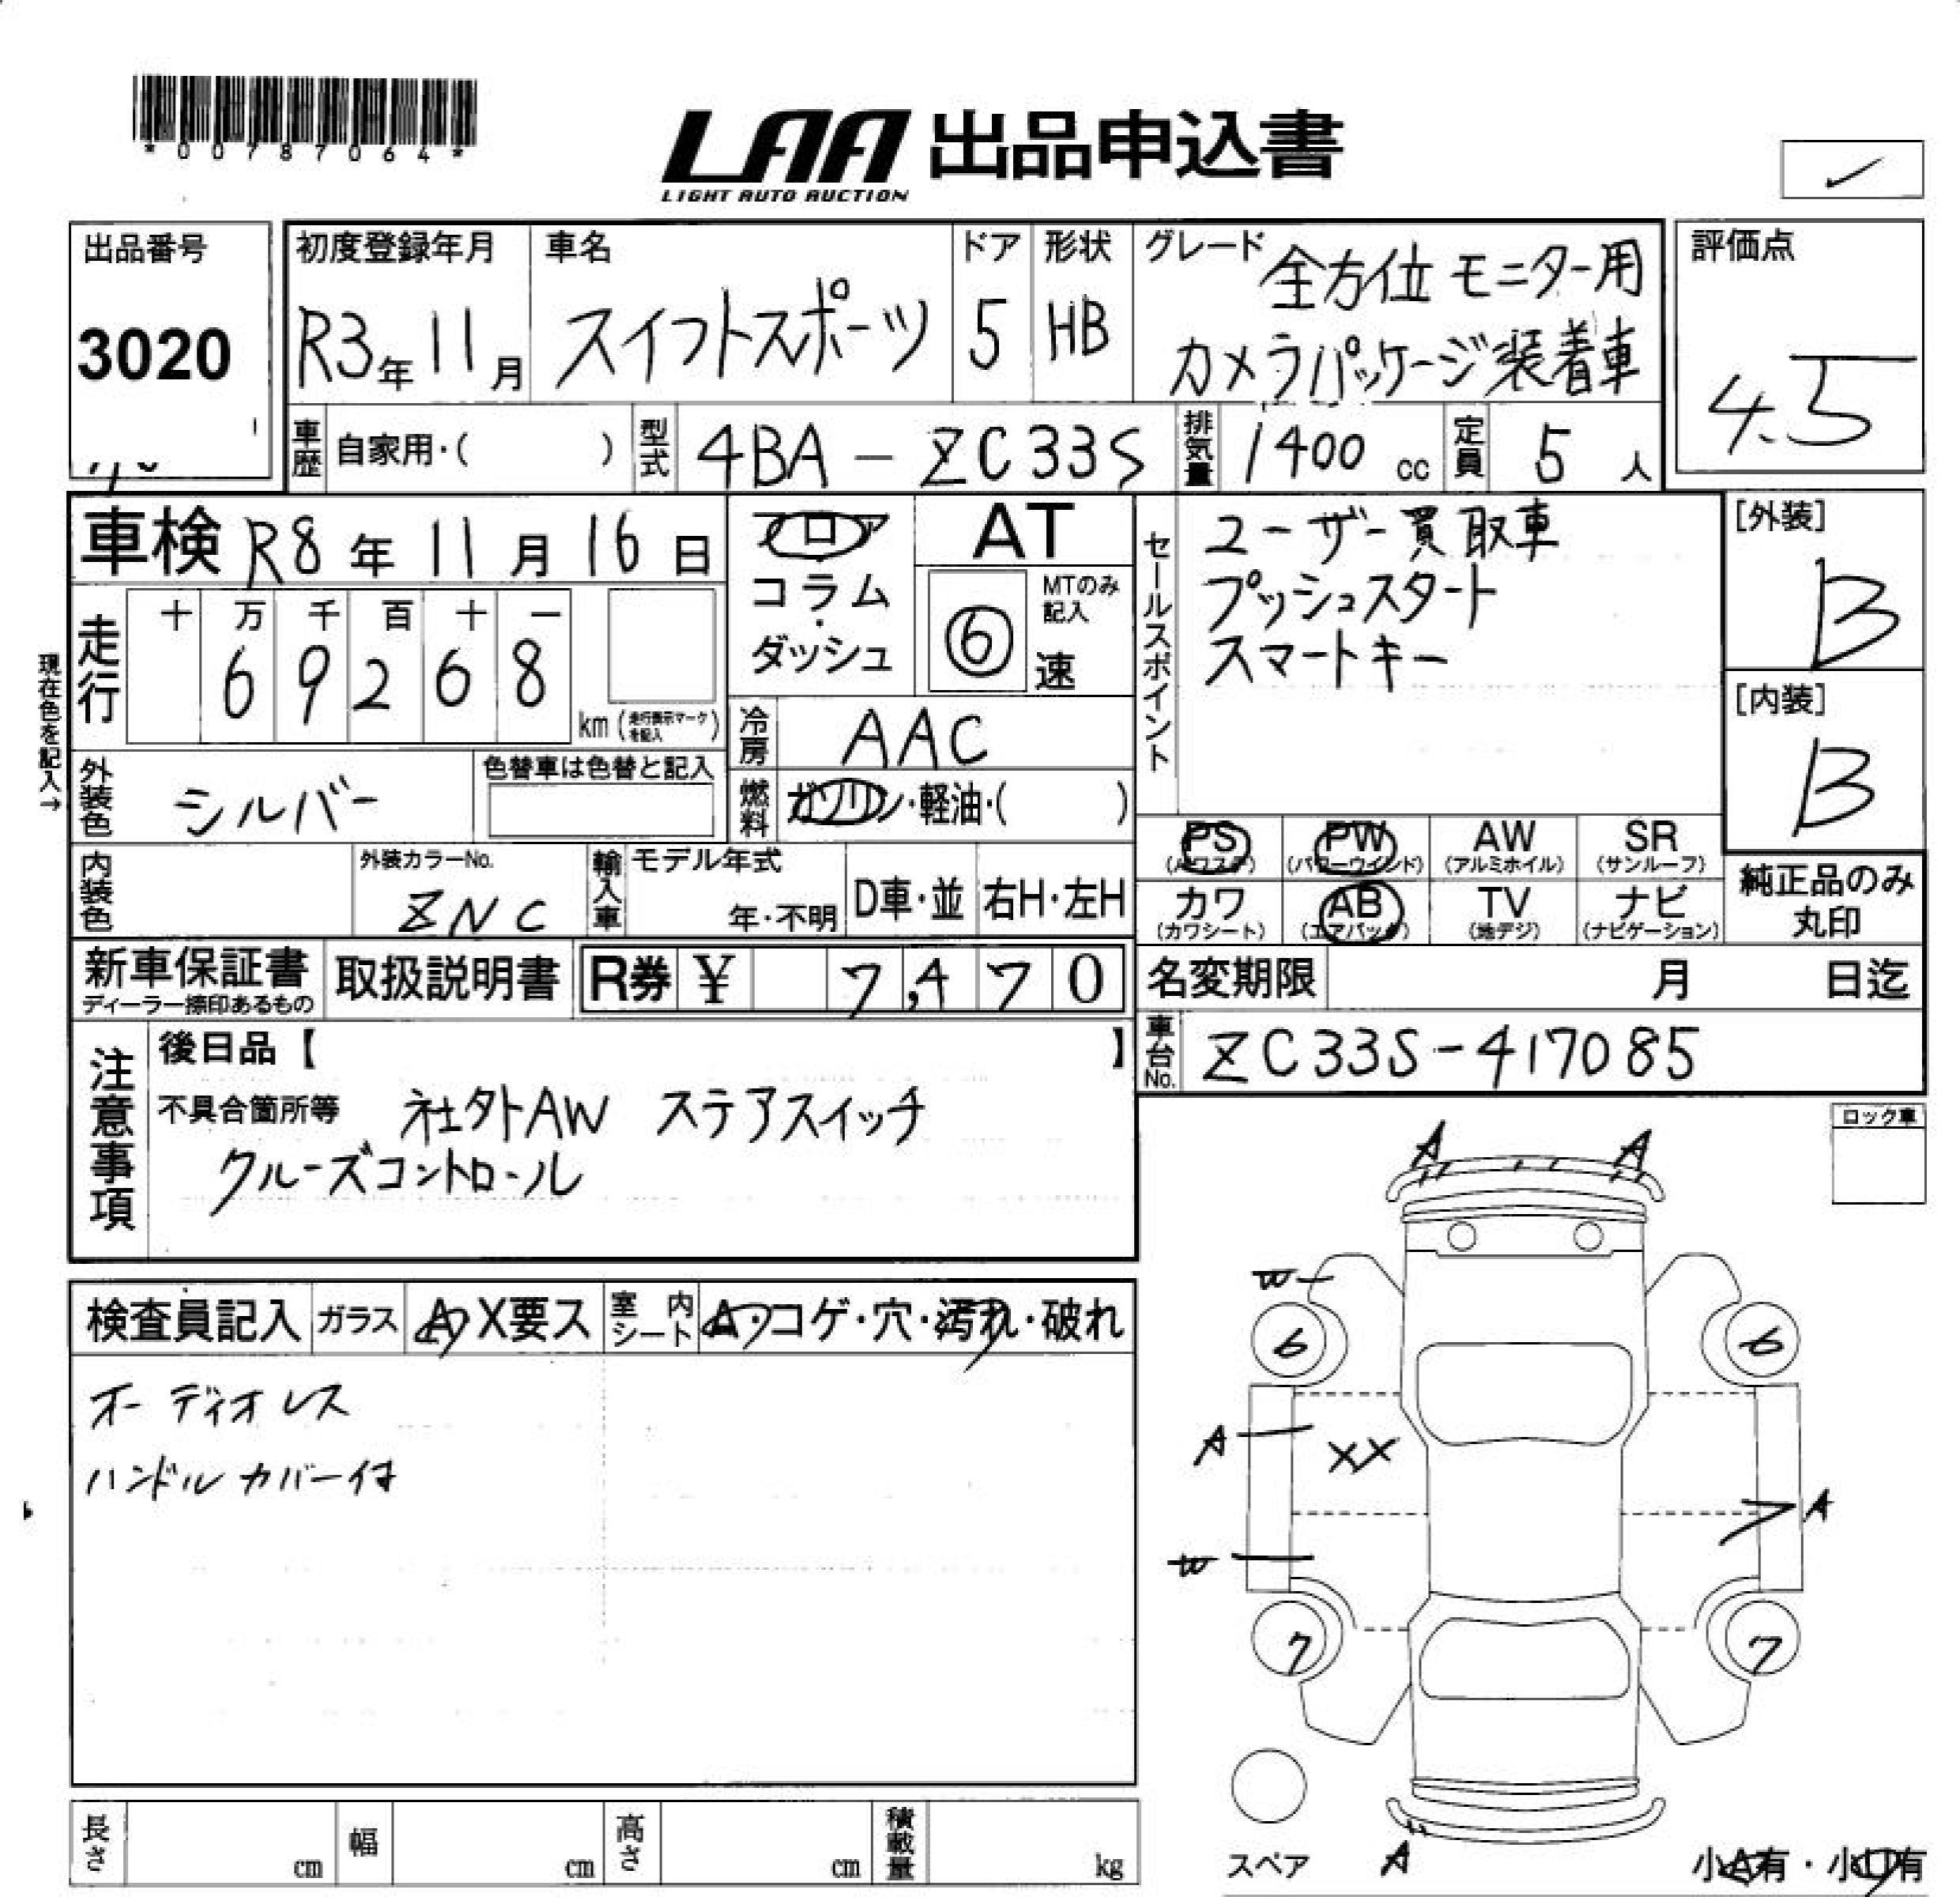 *00787064*
LAA 出品申込書
LIGHT AUTO AUCTION
出品番号
3020
初度登録年月
R3年11月
車名
スイフトスポーツ
ドア
5
形状
HB
グレード
全方位モニター用
カメラパッケージ装着車
評価点
4.5
車歴 自家用・( )
型式 4BA-ZC33S
排気量 1400 cc
定員 5 人
車検 R8年11月16日
フロア
コラム
ダッシュ
AT
MTのみ記入
6 速
セールスポイント
ユーザー買取車
プッシュスタート
スマートキー
[外装]
B
[内装]
B
現在色を記入→
走行
十 万 千 百 十 一
6 9 2 6 8
km (走行表示マークを記入)
冷房 AAC
燃料 ガソリン・軽油・( )
外装色 シルバー
色替車は色替と記入
内装色
外装カラーNo.
ZNC
輸入車 モデル年式
年・不明
D車・並
右H・左H
PS (パワステ)
PW (パワーウインド)
AW (アルミホイル)
SR (サンルーフ)
カワ (カワシート)
AB (エアバック)
TV (地デジ)
ナビ (ナビゲーション)
純正品のみ
丸印
新車保証書
ディーラー捺印あるもの
取扱説明書
R券 ¥ 7,470
名変期限 月 日迄
車台No. ZC33S-417085
注意事項
後日品【 】
不具合箇所等 社外AW ステアスイッチ
クルーズコントロール
ロック車
検査員記入 ガラス A・X要ス 室内シート A・コゲ・穴・汚れ・破れ
オーディオレス
ハンドルカバー付
A A
W
6 6
A XX
A
W
7 7
A
スペア
小A有・小凹有
長さ cm
幅 cm
高さ cm
積載量 kg